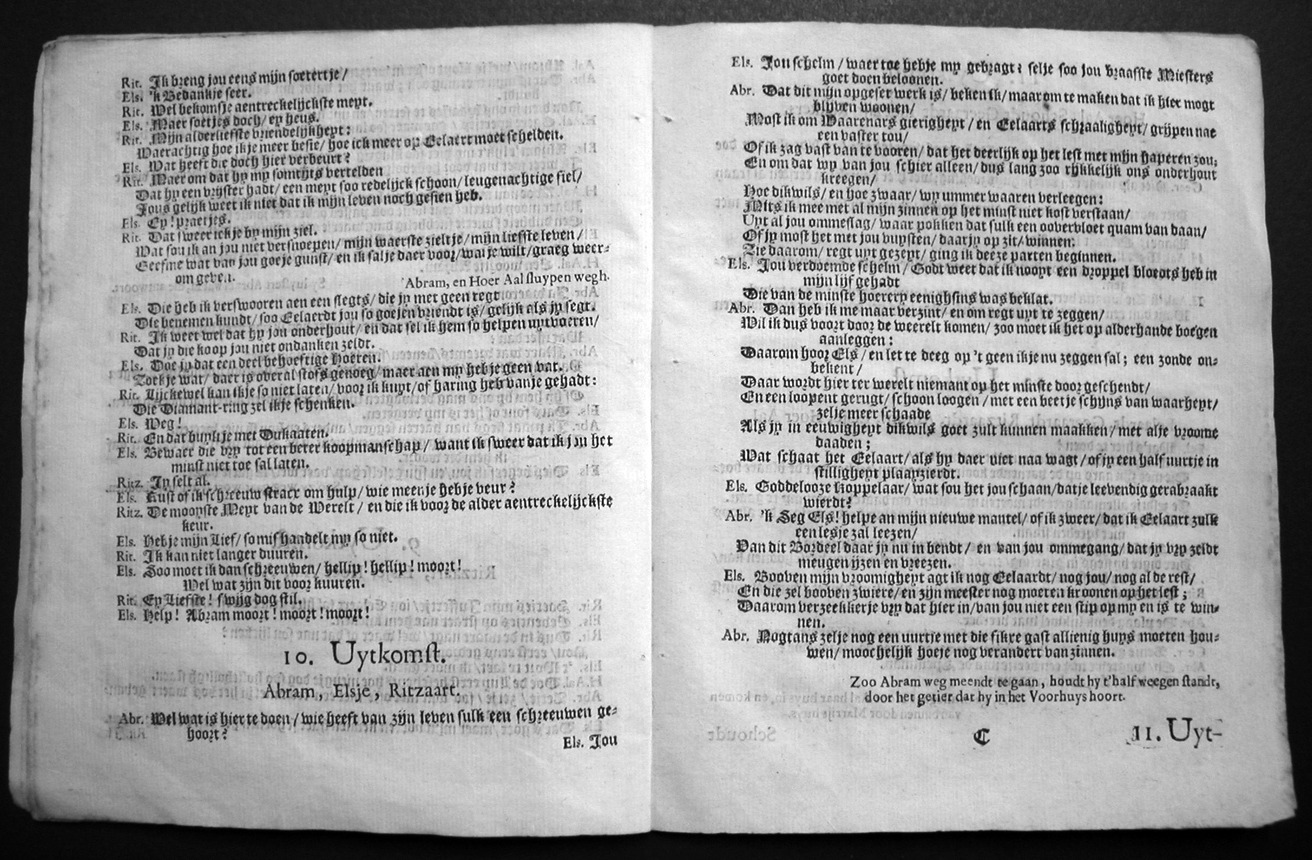 Rit. Ik breng jou eens mijn soetertje/
Els. 'k Bedankje seer.
Rit. Wel bekomsje aentreckelijckste meyt.
Els. Maer soetjes doch/ ey heus.
Rit. Mijn alderliefste vriendelijkheyt:
Waerachtig hoe ikje meer besie/ hoe ick meer op Eelaert moet schelden.
Els. Wat heeft die doch hier verbeurt?
Rit. Maer om dat hy my somtyts vertelden
Dat hy een vryster hadt/ een meyt soo redelijck schoon/ leugenachtige fiel/
Jous gelijk weet ik niet dat ik mijn leven noch gesien heb.
Els. Ey! praetjes.
Rit. Dat sweer ickje by mijn ziel.
Wat sou ik an jou niet versnoepen/ mijn waerste zieltje/ mijn liefste leven/
Geefme wat van jou goeje gunst/ en ik salje daer voor/ wat je wilt/ graeg weer-
om geven.
Abram, en Hoer Aal sluypen wegh.
Els. Die heb ik verswooren aen een slegts/ die jy met geen regt
Die benemen kundt/ soo Eelaerdt jou so goejen vriendt is/ gelijk als jy segt.
Rit. Ik weet wel dat hy jou onderhout/ en dat sel ik hem so helpen uytvoeren/
Dat jy die koop jou niet ondanken zeldt.
Els. Doe jy dat een deel behoeftige Hoeren.
Zoek je wat/ daer is overal stofs genoeg/ maer aen my heb je geen vat.
Rit. Lijckewel kan ikje so niet laten/ voor ik kuyt/ of haring heb van je gehadt:
Die Diamant-ring zel ikje schenken.
Els. Weg!
Rit. En dat buyltje met Dukaaten.
Els. Bewaer die vry tot een beter koopmanschap/ want ik sweer dat ik jou het
minst niet toe sal laten.
Ritz. Jy selt al.
Els. Rust of ik schreeuw stracx om hulp/ wie meenje hebje veur?
Ritz. De mooyste Meyt van de Werelt/ en die ik voor de alder aentreckelijckste
keur.
Els. Hebje mijn Lief/ so mishandelt my so niet.
Rit. Ik kan niet langer duuren.
Els. Soo moet ik dan schreeuwen/ hellip! hellip! moort!
Wel wat zijn dit voor kuuren.
Rit. Ey Liefste! swijg dog stil.
Els. Help! Abram moort! moort! moort!
10. Uytkomst.
Abram, Elsje, Ritzaart.
Abr. Wel wat is hier te doen/ wie heeft van zijn leven sulk een schreeuwen ge-
hoort?
Els. Jou
Els. Jou schelm/ waer toe hebje my gebragt? selje soo jou braafste Miesters
goet doen beloonen.
Abr. Dat dit mijn opgeset werk is/ beken ik/ maar om te maken dat ik hier mogt
blijven woonen/
Most ik om Waarenars gierigheyt/ en Eelaarts schraaligheyt/ grijpen nae
een vaster tou/
Of ik zag vast van te vooren/ dat het deerlijk op het lest met mijn haperen zou;
En om dat wy van jou schier alleen/ dus lang zoo rijkkelijk ons onderhout
kreegen/
Hoe dikwils/ en hoe zwaar/ wy ummer waaren verleegen:
Mits ik mee met al mijn zinnen op het minst niet kost verstaan/
Uyt al jou ommeslag/ waar pokken dat sulk een oovervloet quam van daan/
Of jy most het met jou buysten/ daar jy op zit/ winnen.
Zie daarom/ regt uyt gezeyt/ ging ik deeze parten beginnen.
Els. Jou verdoemde schelm/ Godt weet dat ik nooyt een droppel bloets heb in
mijn lijf gehadt
Die van de minste hoerery eenighsins was beklat.
Abr. Dan heb ik me maar verzint/ en om regt uyt te zeggen/
Wil ik dus voort door de weerelt komen/ zoo moet ik het op alderhande boegen
aanleggen:
Daarom hoor Els/ en let te deeg op 't geen ikje nu zeggen sal; een zonde on-
bekent/
Daar wordt hier ter werelt niemant op het minste door geschendt/
En een loopent gerugt/ schoon loogen/ met een beetje schijns van waarheyt/
zelje meer schaade
Als jy in eeuwigheyt dikwils goet zult kunnen maakken/ met alje vroome
daaden;
Wat schaat het Eelaart/ als hy daer niet naa vragt/ of jy een half uurtje in
stilligheyt plaayzierdt.
Els. Goddelooze Koppelaar/ wat sou het jou schaan/ datje leevendig gerabraakt
wierdt?
Abr. 'k Seg Els! helpe an mijn nieuwe mantel/ of ik zweer/ dat ik Eelaart zulk
een lesje zal leezen/
Van dit Bordeel daar jy nu in bendt/ en van jou ommegang/ dat jy vry zeldt
meugen yzen en vreezen.
Els. Booven mijn vroomigheyt agt ik nog Eelaardt/ nog jou/ nog al de rest/
En die zel booven zwiere/ en zijn meester nog moeten kroonen op het lest;
Daarom verzeekkerje vry dat hier in/ van jou niet een stip op my en is te win-
nen.
Abr. Nogtans zelje nog een uurtje met die sikre gast allienig huys moeten hou-
wen/ moochelijk hoeje nog verandert van zinnen.
Zoo Abram weg meendt te gaan, houdt hy t'half weegen standt,
door het getier dat hy in het Voorhuys hoort.
C
11. Uyt-